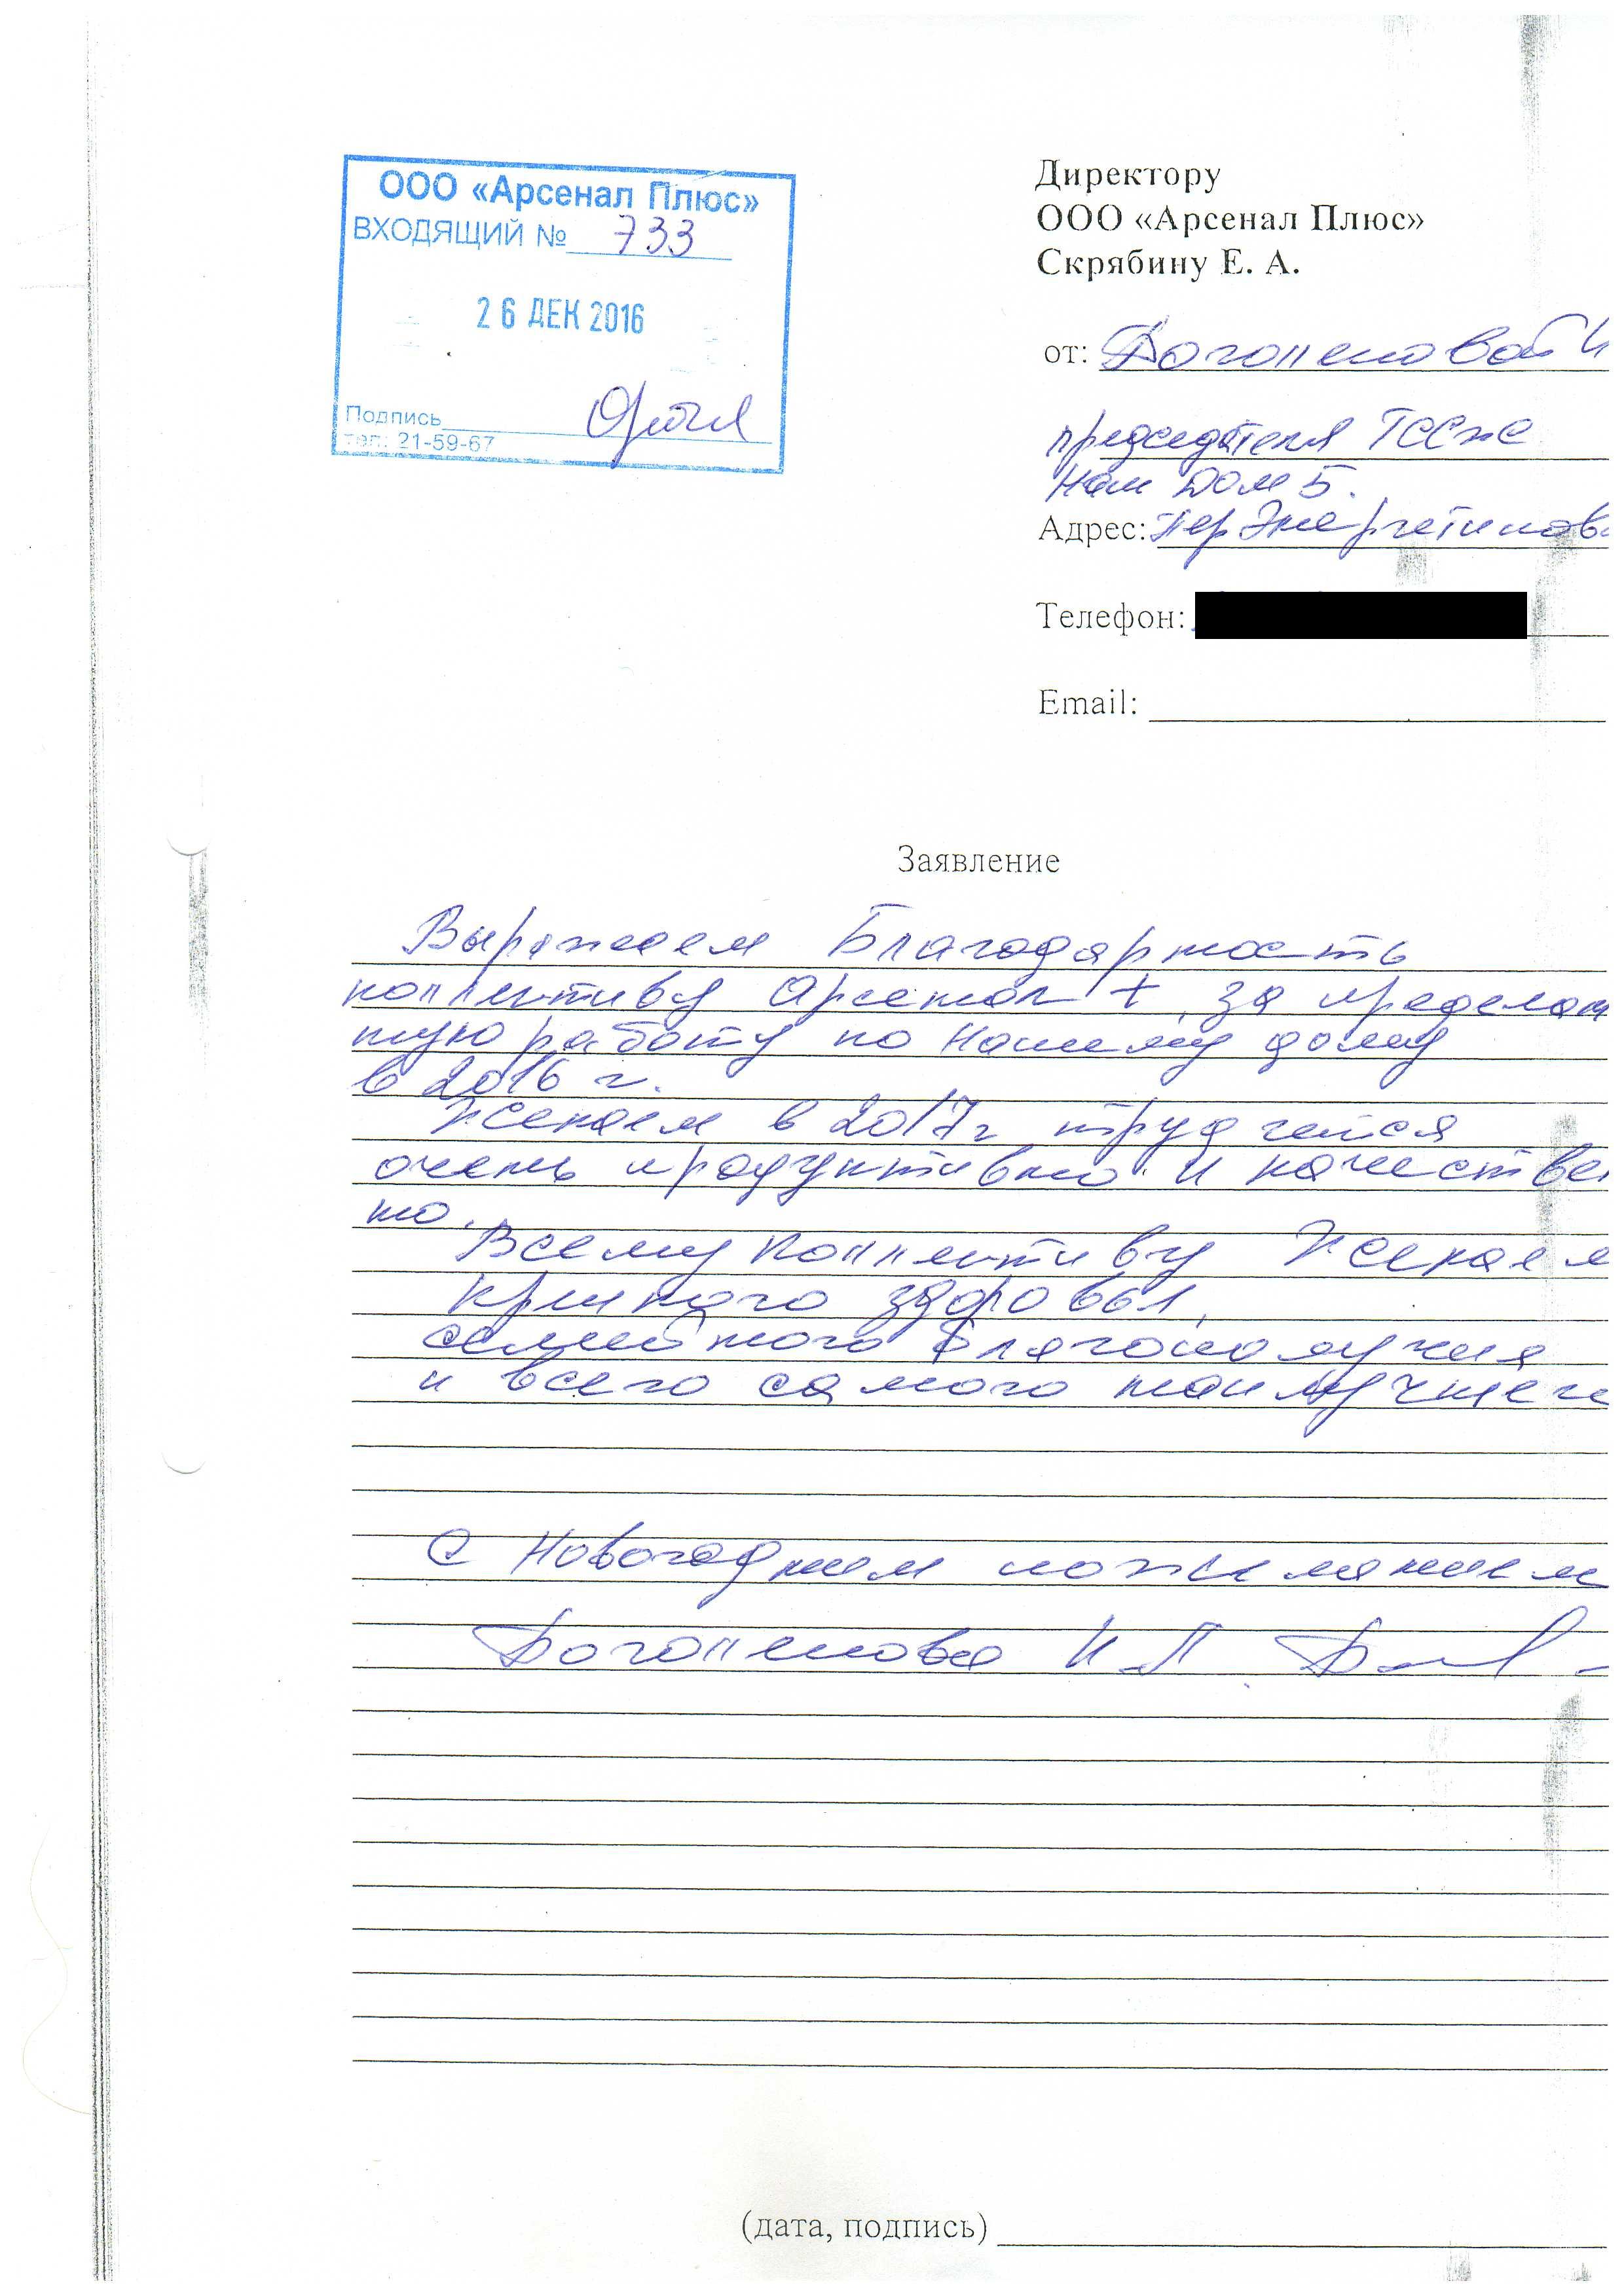 ООО «Арсенал Плюс»
ВХОДЯЩИЙ № 733
26 ДЕК 2016
Подпись
тел: 21-59-67
Директору
ООО «Арсенал Плюс»
Скрябину Е. А.
от: Боголеповой И
председателя ТСЖ
Наш Дом 5.
Адрес: пер Энергетиков
Телефон:
Email:
Заявление
Выражаем Благодарность
коллективу Арсенал + за проделан
ную работу по нашему дому
в 2016 г.
Желаем в 2017г трудится
очень продуктивно и качествен
но.
Всему коллективу Желаем
крепкого здоровья,
семейного благополучия
и всего самого наилучшего
С Новогодним пожеланием
И.П.
(дата, подпись)